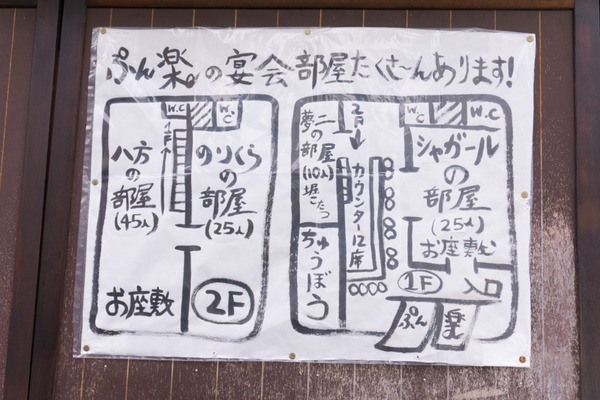 ぷん楽の宴会部屋たくさ〜んあります!
W.C
W.C
八方
の
部屋
(45人)
上
のりくら
の
部屋
(25人)
お座敷
2F
夢二
の
部屋
(10人)
堀こたつ
ちゅうぼう
カウンター12席
W.C
W.C
シャガール
の
部屋
(25人)
お座敷
1F
入口
ぷん
楽